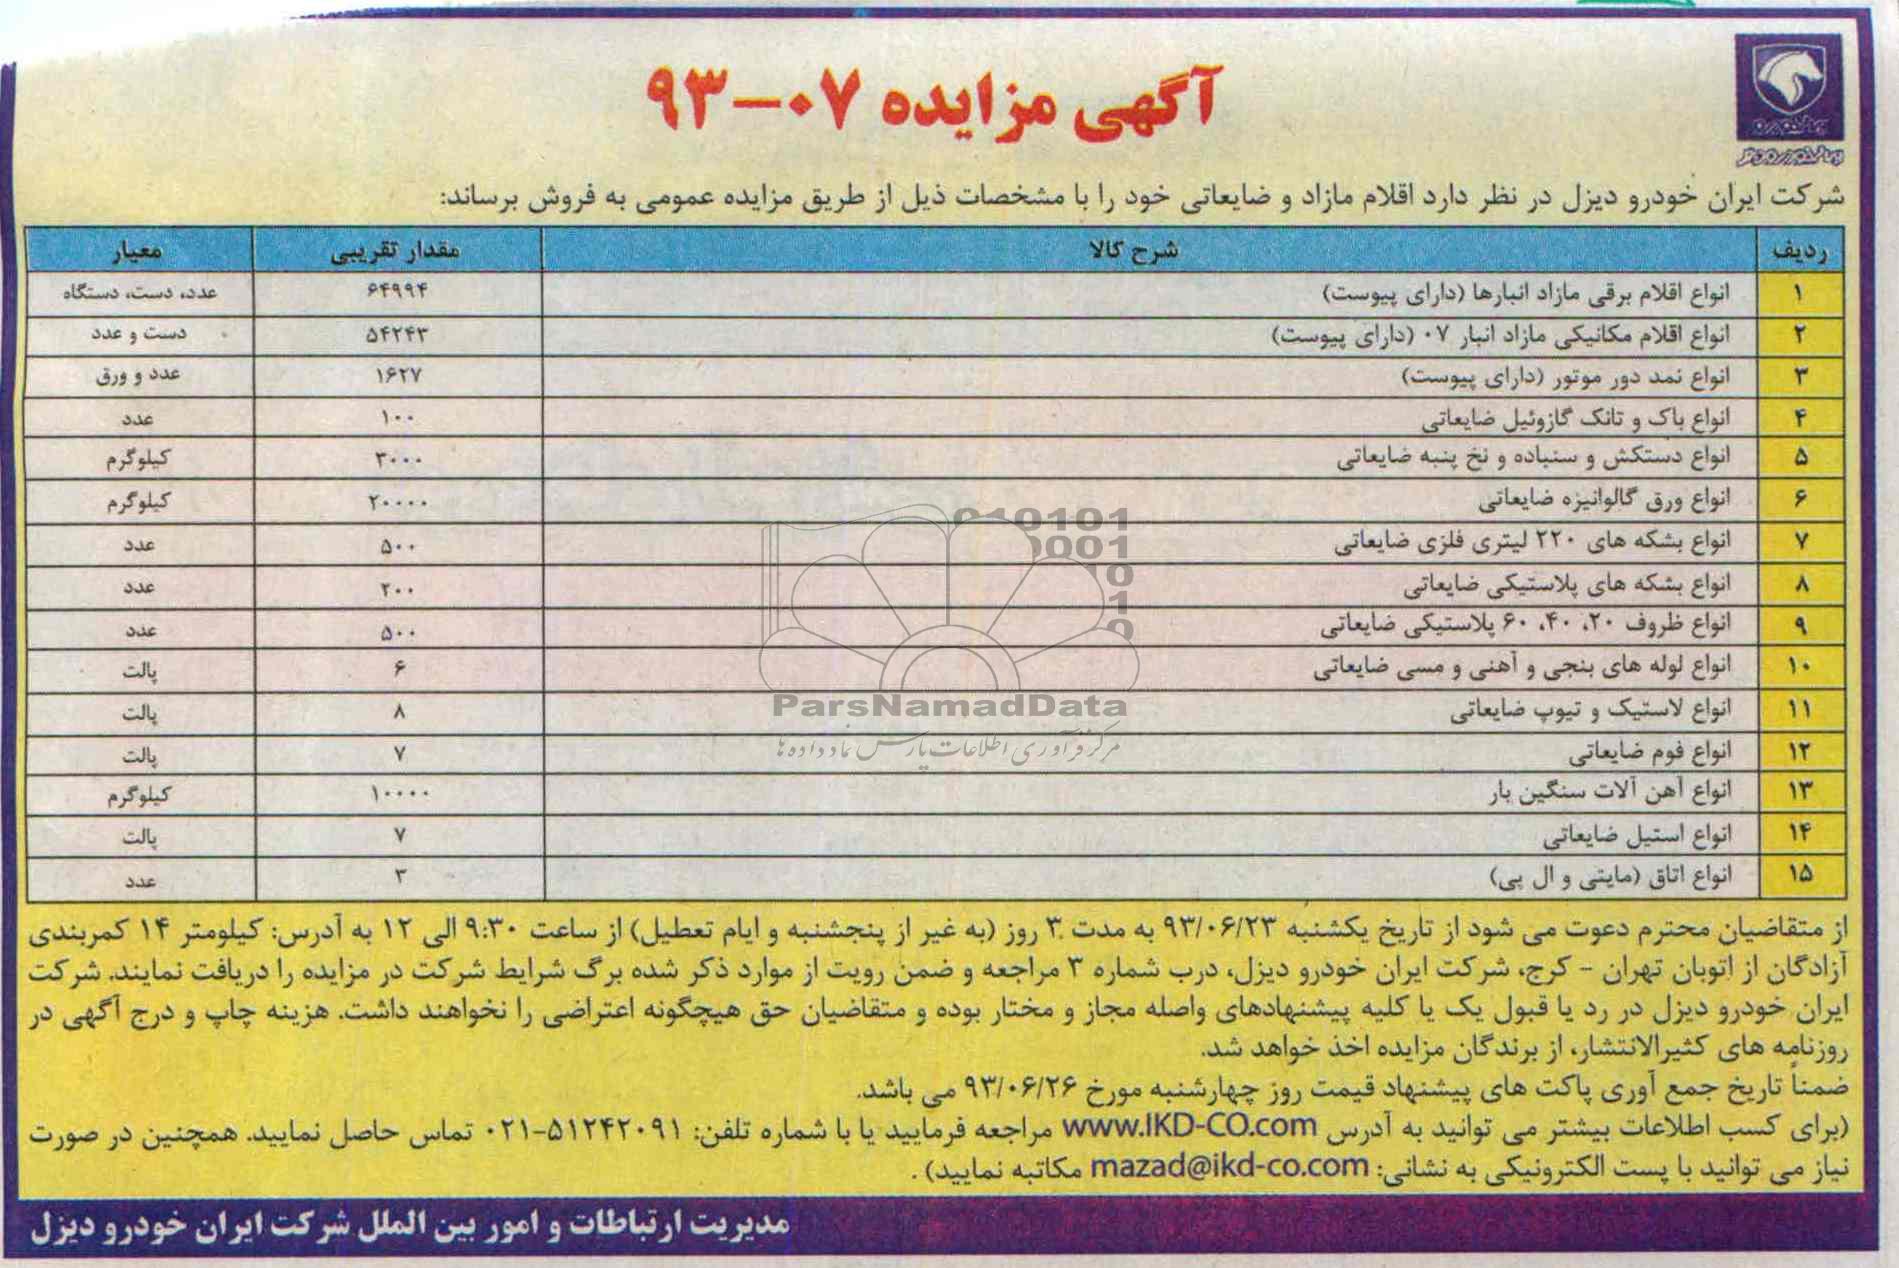 آگهی مزایده ۰۷-۹۳
شرکت ایران خودرو دیزل در نظر دارد اقلام مازاد و ضایعاتی خود را با مشخصات ذیل از طریق مزایده عمومی به فروش برساند:
ردیف شرح کالا مقدار تقریبی معیار
۱ انواع اقلام برقی مازاد انبارها (دارای پیوست) ۶۴۹۹۴ عدد، دست، دستگاه
۲ انواع اقلام مکانیکی مازاد انبار ۰۷ (دارای پیوست) ۵۴۲۴۳ دست و عدد
۳ انواع نمد دور موتور (دارای پیوست) ۱۶۲۷ عدد و ورق
۴ انواع باک و تانک گازوئیل ضایعاتی ۱۰۰ عدد
۵ انواع دستکش و سنباده و نخ پنبه ضایعاتی ۳۰۰۰ کیلوگرم
۶ انواع ورق گالوانیزه ضایعاتی ۲۰۰۰۰ کیلوگرم
۷ انواع بشکه های ۲۲۰ لیتری فلزی ضایعاتی ۵۰۰ عدد
۸ انواع بشکه های پلاستیکی ضایعاتی ۲۰۰ عدد
۹ انواع ظروف ۲۰، ۴۰، ۶۰ پلاستیکی ضایعاتی ۵۰۰ عدد
۱۰ انواع لوله های بنجی و آهنی و مسی ضایعاتی ۶ پالت
۱۱ انواع لاستیک و تیوپ ضایعاتی ۸ پالت
۱۲ انواع فوم ضایعاتی ۷ پالت
۱۳ انواع آهن آلات سنگین بار ۱۰۰۰۰ کیلوگرم
۱۴ انواع استیل ضایعاتی ۷ پالت
۱۵ انواع اتاق (مایتی و ال پی) ۳ عدد
010101
0001
10
1
0
ParsNamadData
مرکز فرآوری اطلاعات پارس نماد داده ها
از متقاضیان محترم دعوت می شود از تاریخ یکشنبه ۹۳/۰۶/۲۳ به مدت ۳ روز (به غیر از پنجشنبه و ایام تعطیل) از ساعت ۹:۳۰ الی ۱۲ به آدرس: کیلومتر ۱۴ کمربندی
آزادگان از اتوبان تهران - کرج، شرکت ایران خودرو دیزل، درب شماره ۳ مراجعه و ضمن رویت از موارد ذکر شده برگ شرایط شرکت در مزایده را دریافت نمایند. شرکت
ایران خودرو دیزل در رد یا قبول یک یا کلیه پیشنهادهای واصله مجاز و مختار بوده و متقاضیان حق هیچگونه اعتراضی را نخواهند داشت. هزینه چاپ و درج آگهی در
روزنامه های کثیرالانتشار، از برندگان مزایده اخذ خواهد شد.
ضمناً تاریخ جمع آوری پاکت های پیشنهاد قیمت روز چهارشنبه مورخ ۹۳/۰۶/۲۶ می باشد.
(برای کسب اطلاعات بیشتر می توانید به آدرس www.IKD-CO.com مراجعه فرمایید یا با شماره تلفن: ۵۱۲۴۲۰۹۱-۰۲۱ تماس حاصل نمایید. همچنین در صورت
نیاز می توانید با پست الکترونیکی به نشانی: mazad@ikd-co.com مکاتبه نمایید).
مدیریت ارتباطات و امور بین الملل شرکت ایران خودرو دیزل